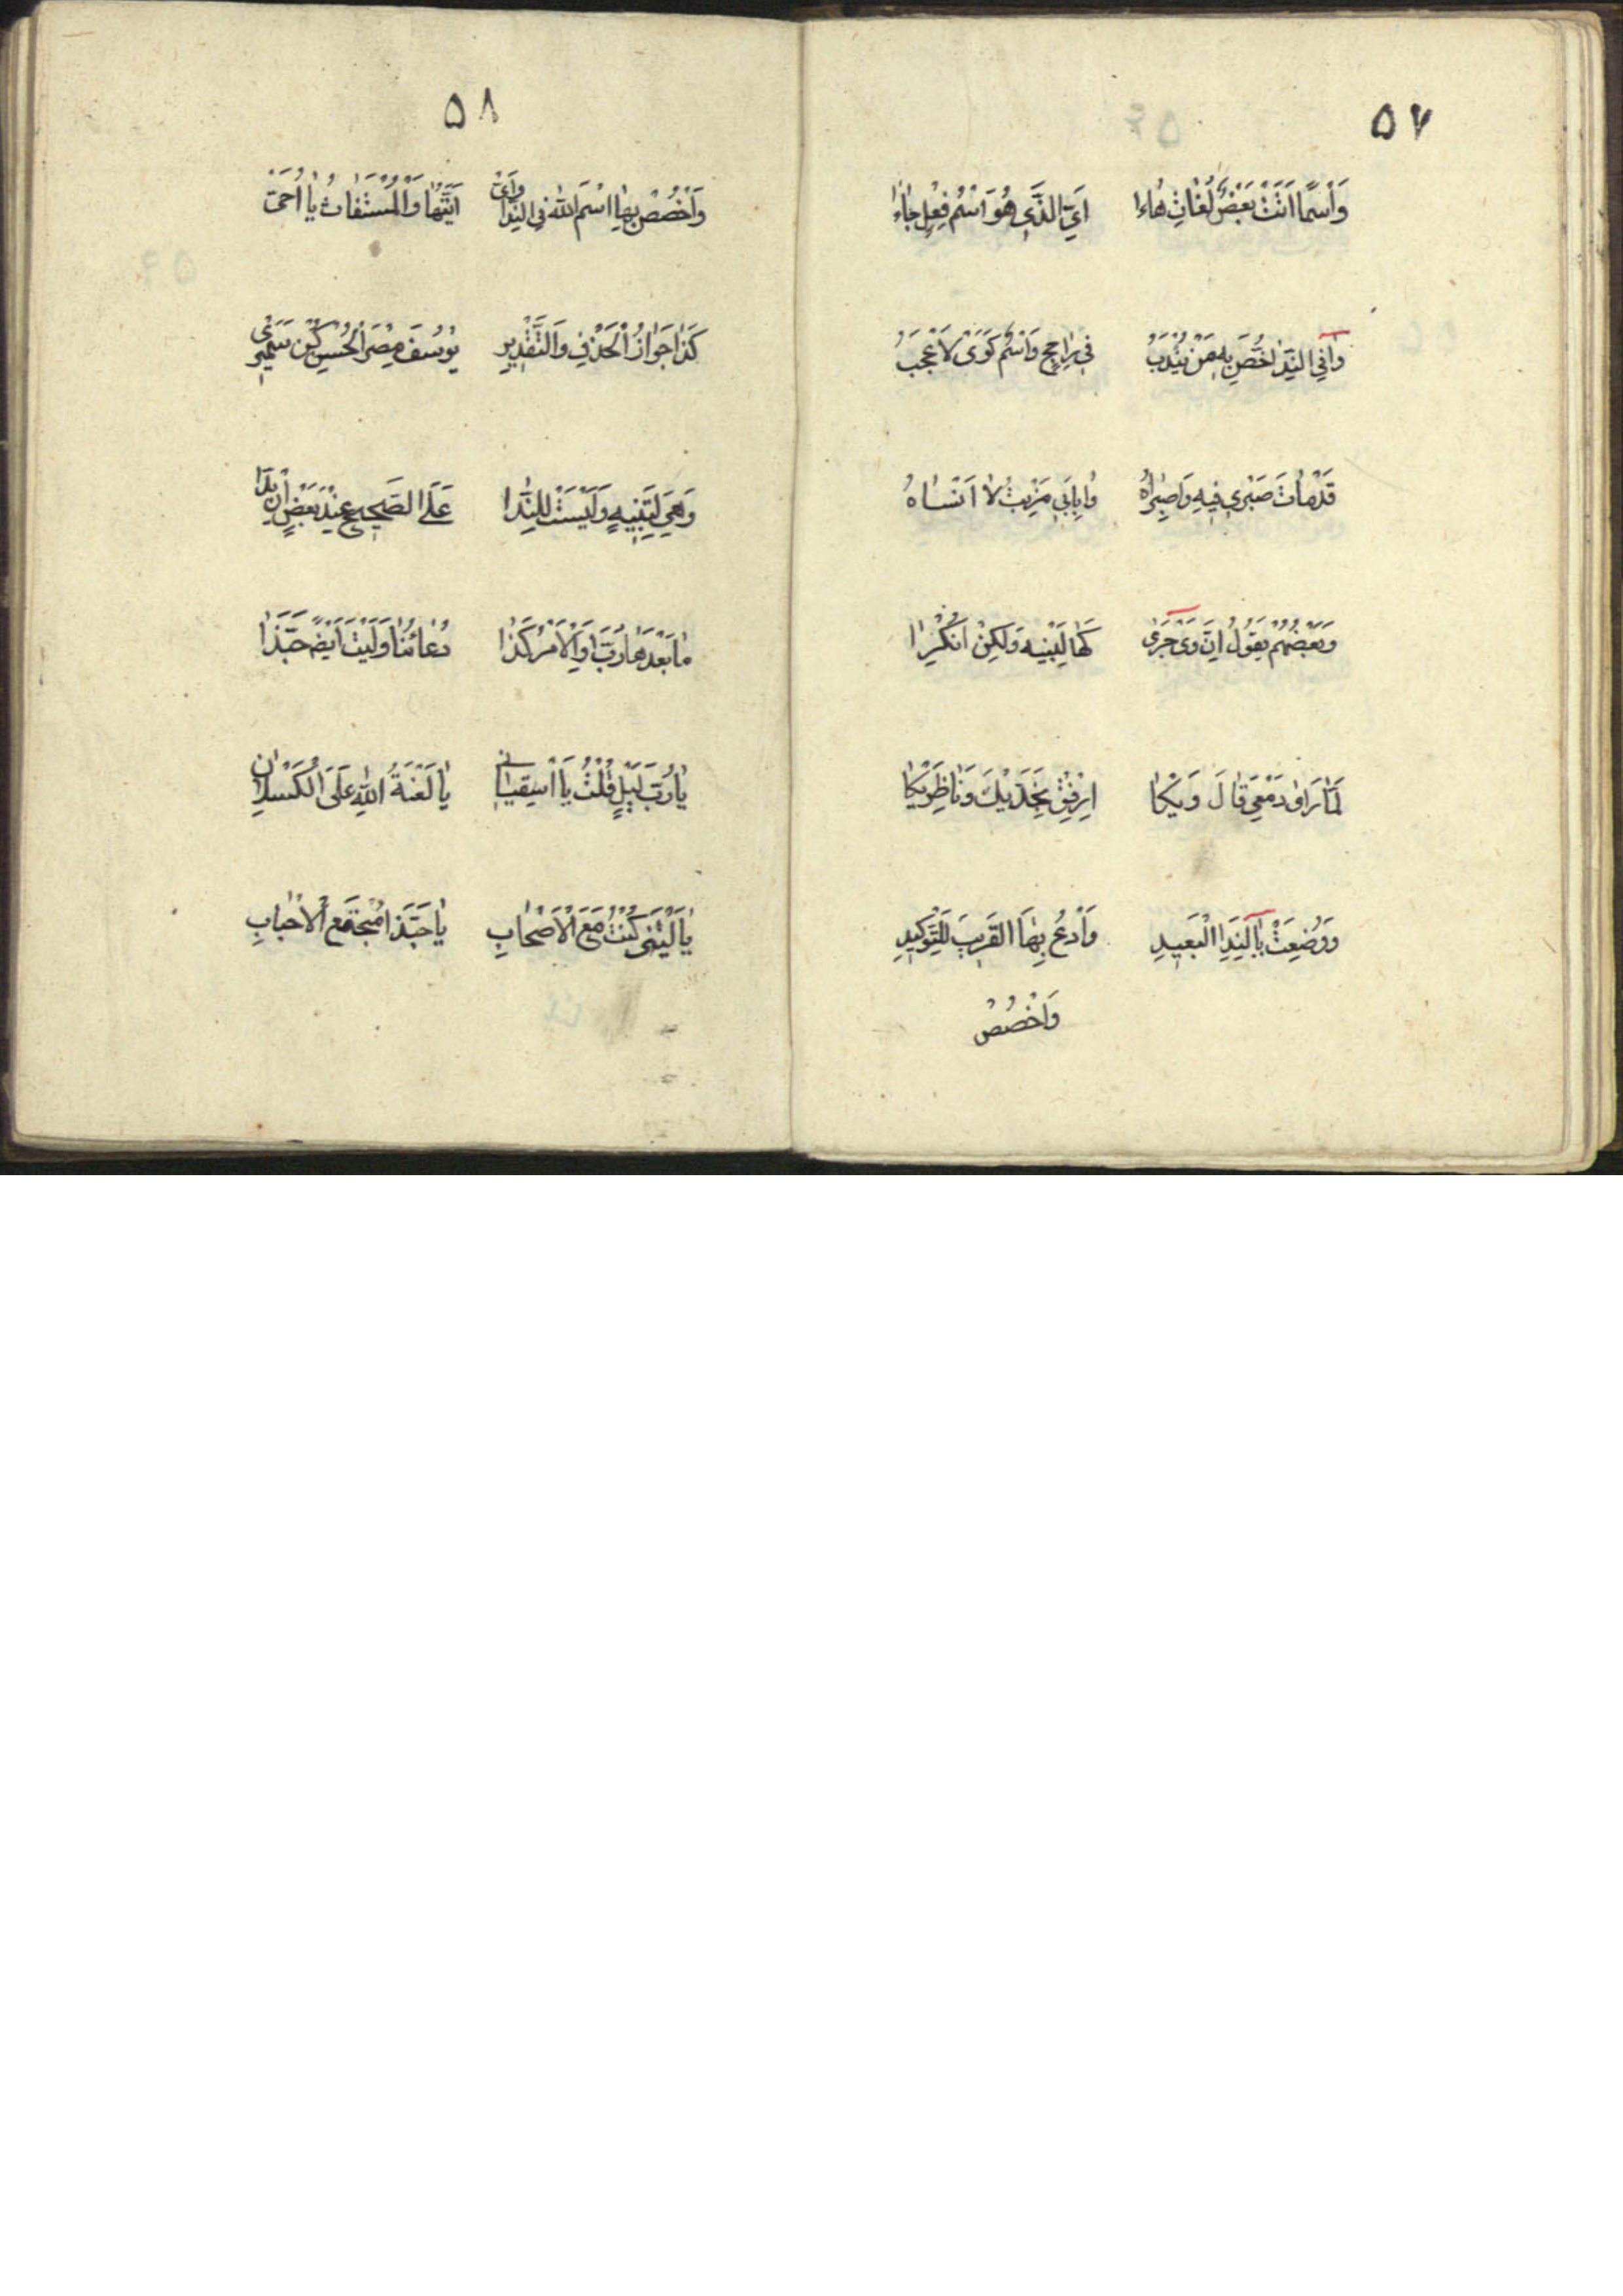 ٥٧
وَاسْمًا اَتَتْ بَعْضُ لُغَاتِ هٰاءٰا اَيِ الَّذَي هُوَ اسْمُ فِعْلٍ جٰاءٰا
وٰا فِي النِّدٰا خُصَّ بِهِ مَنْ يُنْدَبُ في رٰاجِحٍ وَاسْمٌ كَوَىْ لَاَعْجَبُ
قَدْ مٰاتَ صَبْرِي فِيهِ وٰاصَبْرٰاهُ وٰا بِاَبِي مَنْ بِتُّ لٰا اَنْسٰاهُ
وَبَعْضُهُمْ يَقُولُ اِنَّ وَىْ جَرىٰ كَهٰا لِتَنْبِيهٍ وَلٰكِنْ اُنْكِرٰا
لَمّٰا رَاىٰ دَمْعِي قٰالَ وَيْكٰا اِرْفِقْ بِخَدَّيْكَ وَنٰاظِرَيْكٰا
وَوُضِعَتْ يٰا لِنِدَا الْبَعِيدِ وَادْعُ بِهَا الْقَرِيبَ لِلتَّوْكِيدِ
وَاخْصُصْ
٥٨
وَاخْصُصْ بِهٰا اسْمَ اللّٰهِ فِي النِّدٰا وَاَىّْ اَيَّتُهٰا وَالْمُسْتَغٰاثُ يٰا اُخَىّْ
كَذٰا جَوٰازُ الْحَذْفِ وَالتَّقْدِيرِ يُوسُفَ مِصْرَ الْحُسْنِ كُنْ سَمِيرِي
وَهْيَ لِتَنْبِيهٍ وَلَيْسَتْ لِلنِّدٰا عَلَى الصَّحِيحِ عِنْدَ بَعْضٍ اِنْ بَدٰا
مٰا بَعْدَهٰا رُبَّ وَالْاَمْرُ كَذٰا دُعٰاؤُنٰا وَلَيْتَ اَيْضً حَبَّذٰا
يٰا رُبَّ لَيْلٍ قُلْتُ يٰا اسْقِيٰانِي يٰا لَعْنَةُ اللّٰهِ عَلَى الْكَسْلٰانِ
يٰا لَيْتَنِي كُنْتُ مَعَ الْاَصْحٰابِ يٰا حَبَّذٰا مُجْتَمَعُ الْاَحْبٰابِ